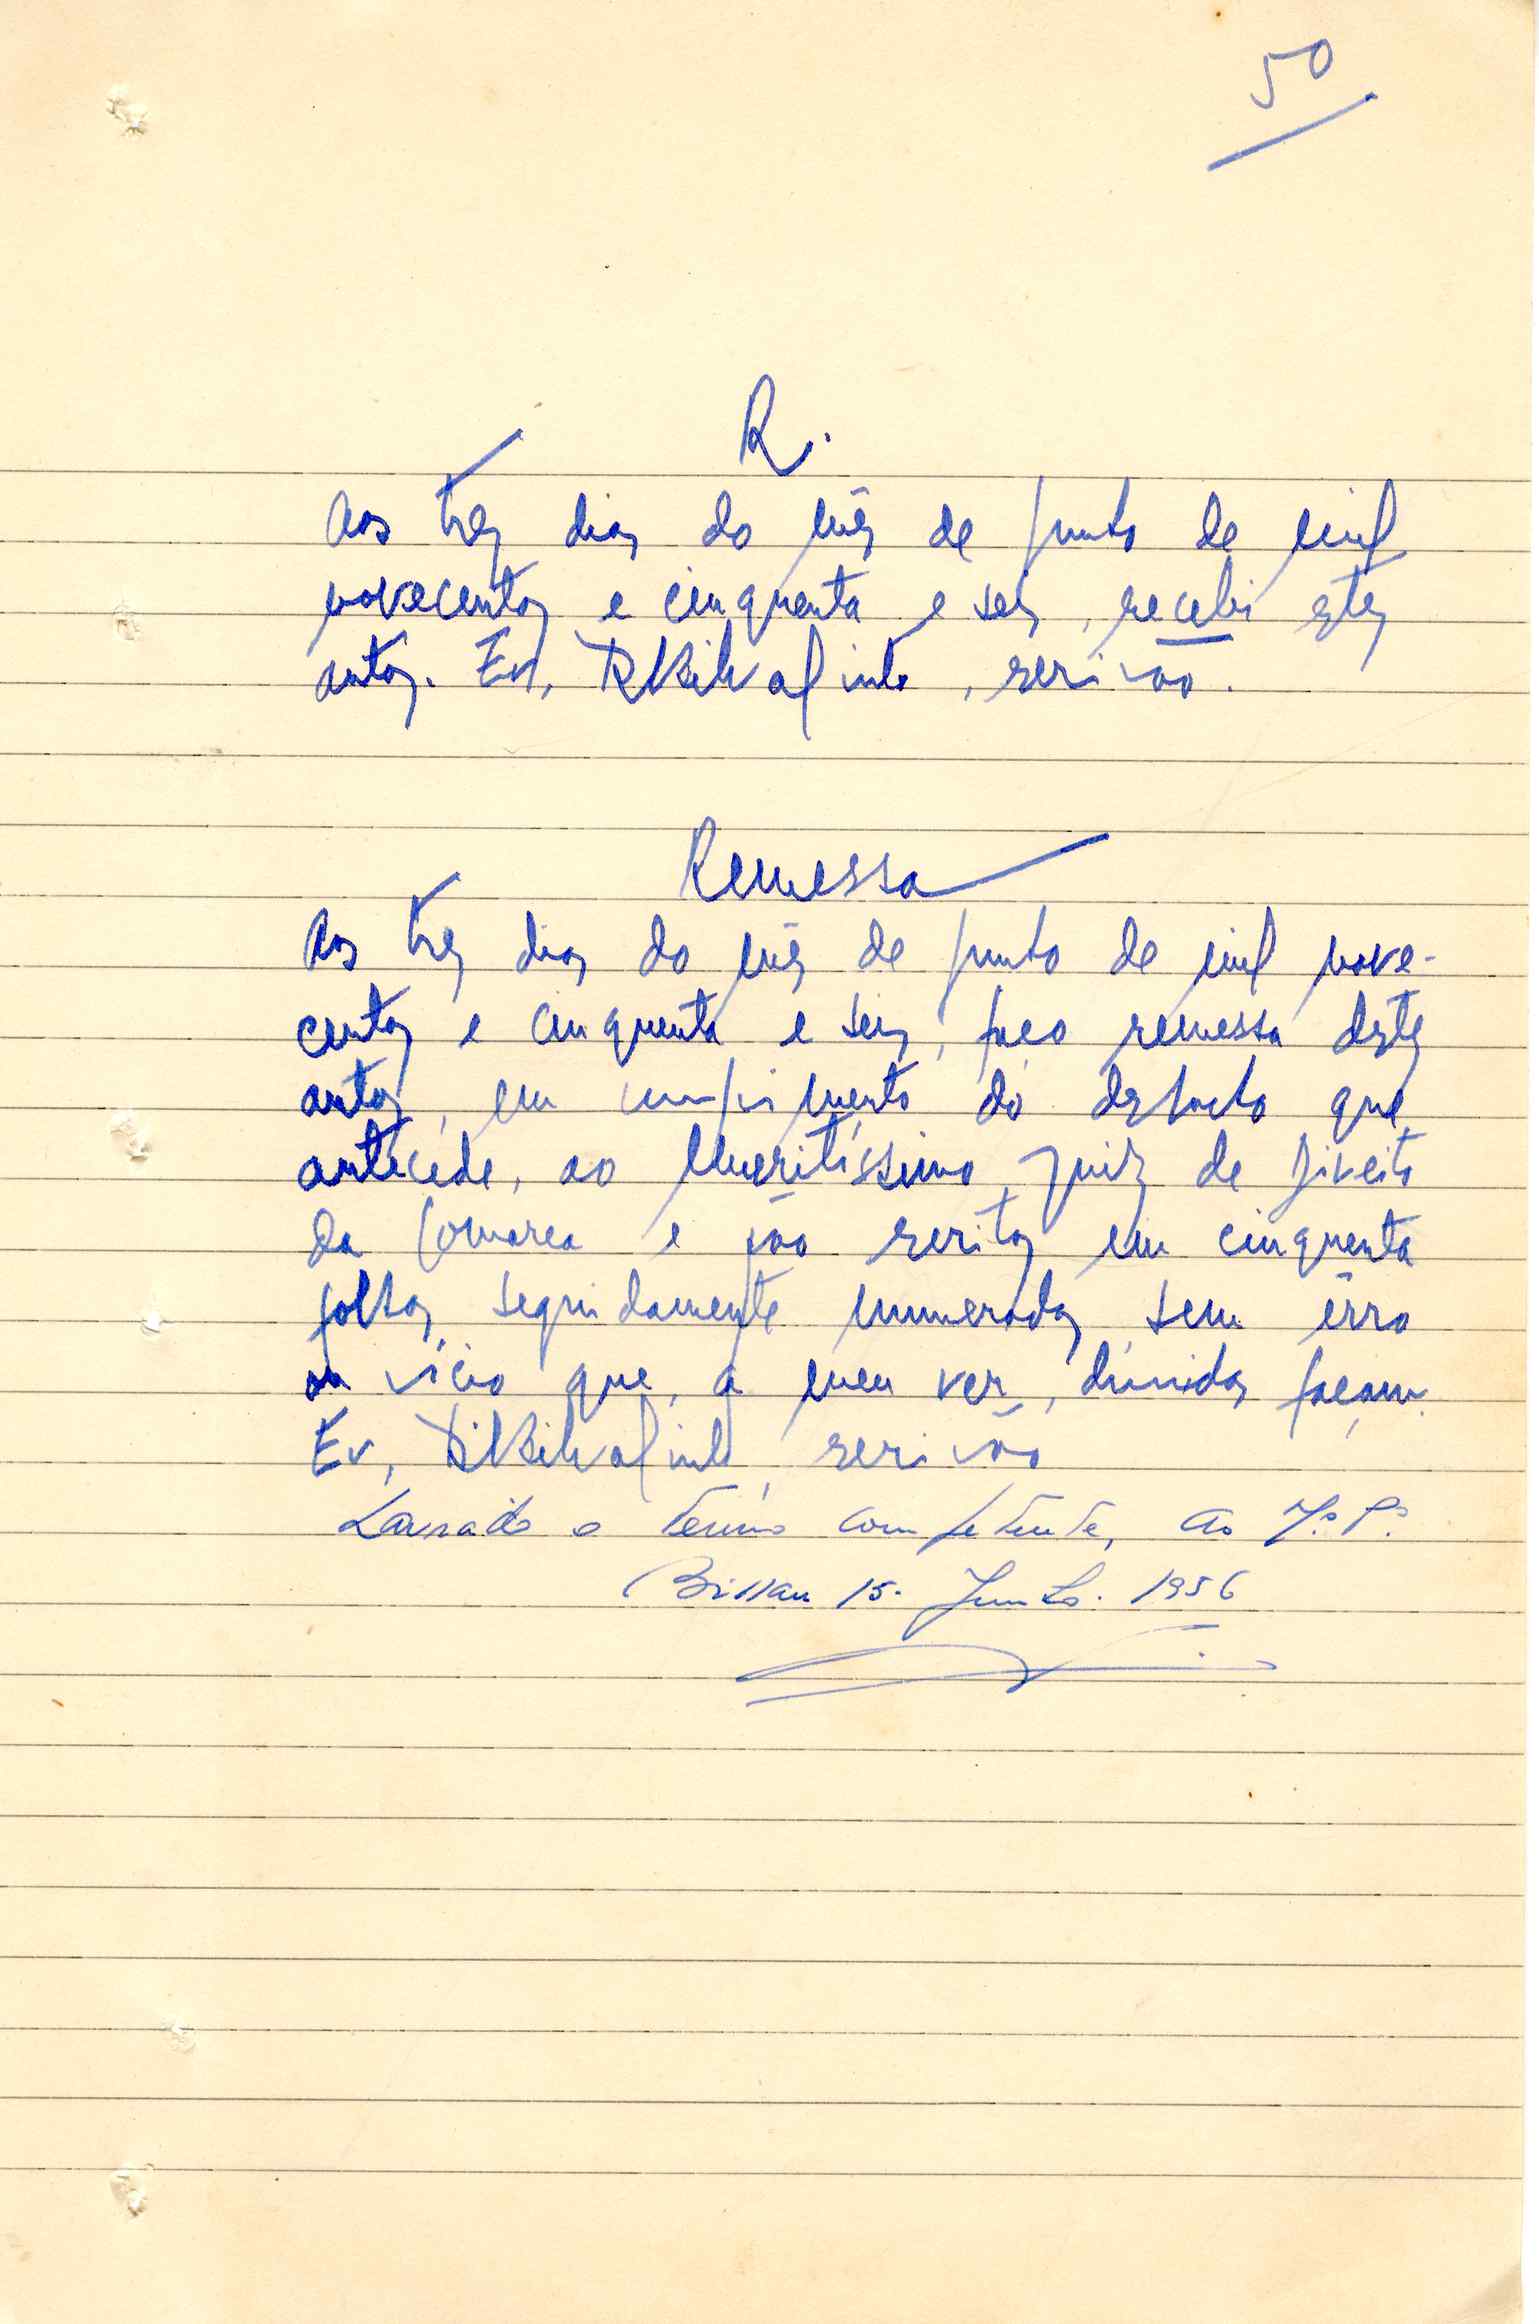 50
R.
Aos três dias do mês de Junho de mil
novecentos e cinquenta e seis, recebi estes
autos. Eu, escrivão.
Remessa
Aos três dias do mês de Junho de mil nove-
centos e cinquenta e seis, faço remessa destes
autos, em cumprimento do despacho que
antecede, ao Meritíssimo Juiz de Direito
da Comarca e vão escritos em cinquenta
folhas seguidamente numeradas sem êrro
ou vício que, a meu ver, dúvidas façam.
Eu, escrivão
Lavrado o termo competente, ao
Bissau 15. Junho. 1956